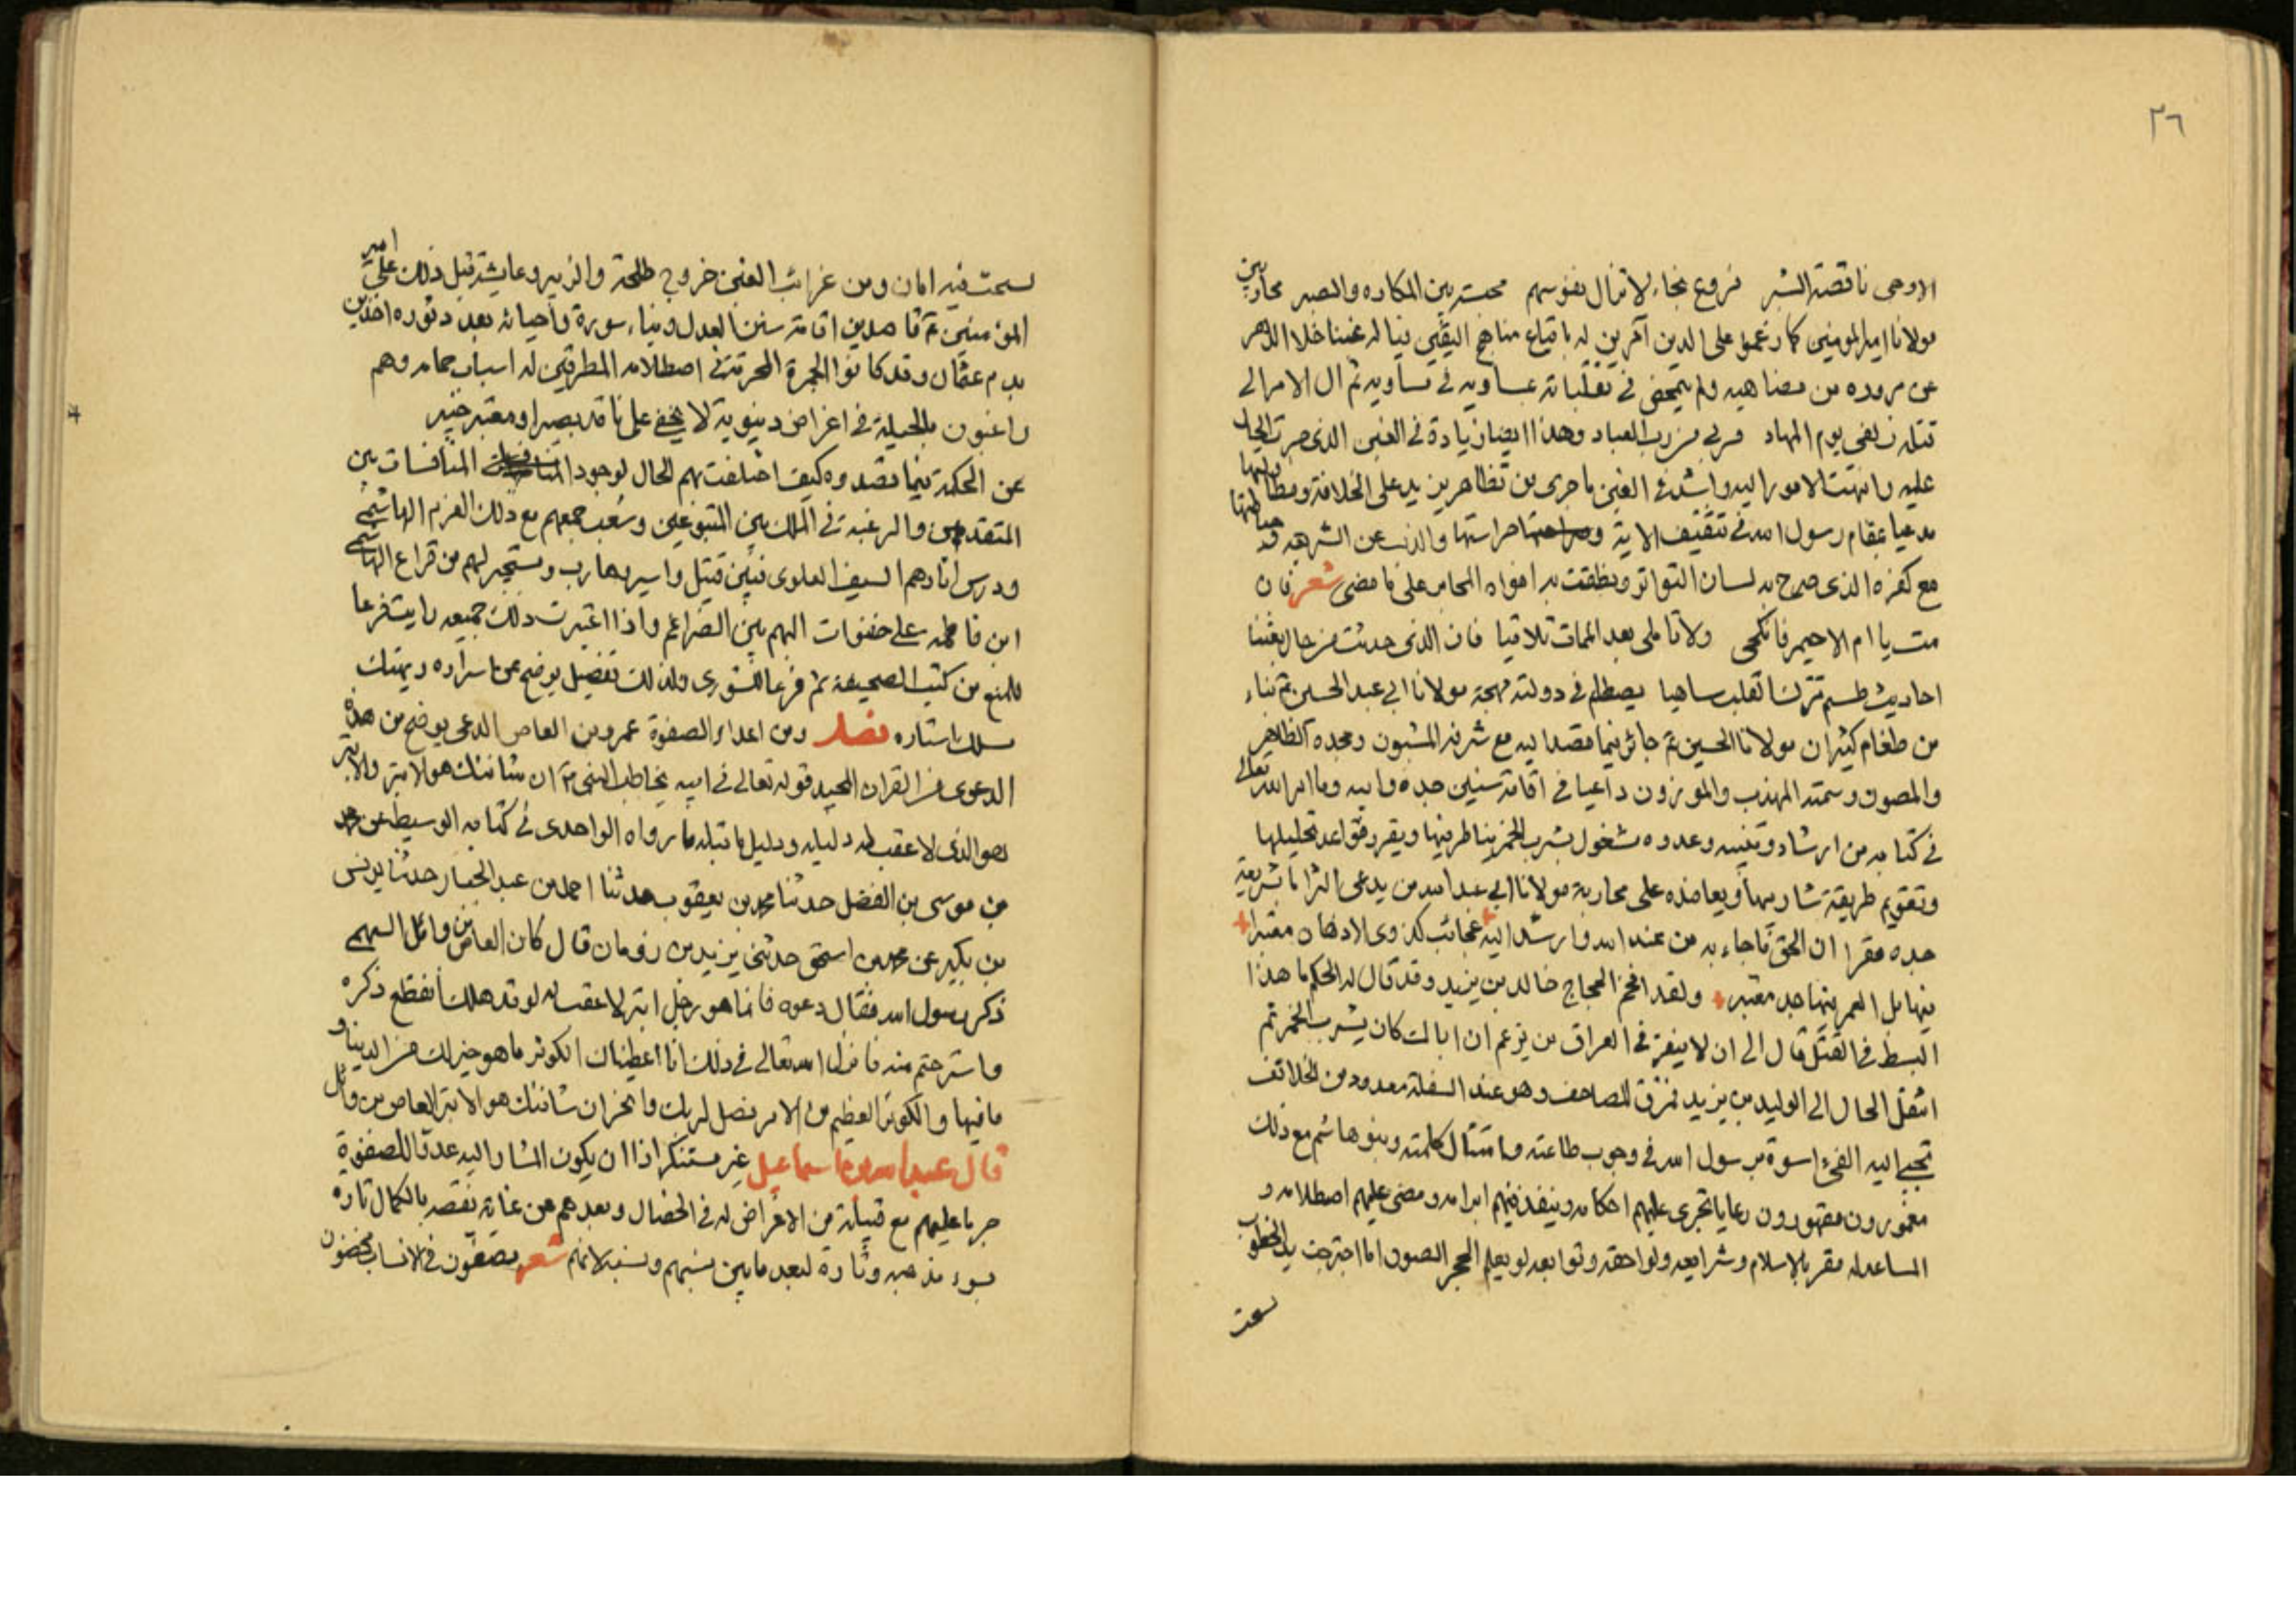 ٣٦
الاوهى ناقصة البشر فروع نجار لا تزال نفوسهم محسة بين المكاره والصبر محاربين
مولانا امير المومنين كارغموا على الدين آمرين له باتباع مناهج اليقين فياله غبنا خلا الدهر
عن مروده من مضاهيه ولم يتمحض في تقلباته عساويه في مساويه ثم ال الامر الى
وهذا ايضا زيادة في الغبن الذى
عليه وانتهت الامور اليه واشد في الغبن ما جرى من تظاهر يزيد على الخلافة ومطالبتها
مدعيا مقام رسول الله في تثقيف الاية حراستها والذب عن
مع كفره الذى صرح به لسان التواتر ونطقت به افواه المحابر على ما مضى شعر فان
مت يا ام الاحيمر فانكحى ولا تاملى بعد الممات تلاقيا فان الذى حدثت من حال بعثنا
احاديث طسم تترك القلب ساهيا يصطلم في دولته مهجة مولانا ابي عبد الحسين ع بناء
من طغام كثير ان مولانا الحسين ع جائر فيما قصد اليه مع شرفه المشهور ومجده الظاهر
والمصون وسمته المهذب والموزون داعيا في اقامة سنين جده وابيه وما امر الله تعالى
في كتابه من ارشاد وتنبيه وعدوه مشغول بشرب الخمر يناظر فيها ويقرر قواعد تحليلها
وتقويم طريقة شاربها ويعاضده على محاربة مولانا ابي عبد الله من يدعى التزاما بشريعة
جده مقرا ان الحق ما جاء به من عند الله وارشد اليه عجائب لذوى الاذهان معتبر
فيها بل العمر فيها جد معتبر ولقد افحم الحجاج خالد بن يزيد وقد قال له الحكم ما هذا
البسط في القتل قال الى ان لا يبقى في العراق من يزعم ان اباك كان يشرب الخمر ثم
انتقل الحال الى الوليد بن يزيد فمزق المصاحف وهو عند السفلة معدود من الخلائف
تجبى اليه الفيء اسوة برسول الله في وجوب طاعته وامتثال كلمته وبنو هاشم مع ذلك
مغمورون مقهورون رعايا تجرى عليهم احكامه وينفذ فيهم ابرامه ومضى عليهم اصطلامه و
المساعد له مقر بالاسلام وشرايعه ولواحقه وتوابعه لو يعلم الحجر الصون اما اجترحت يد الخطوب
لسمحت فيه امان ومن غرائب الغبن خروج طلحة والزبير وعايشة قبل ذلك على امير
المؤمنين ع قاصدين اقامة سنن العدل وبناء سورة واحيائه بعد دثوره اخذين
بدم عثمان وقد كانوا الجمرة المحرقة في اصطلامه المطرقين له اسباب حمامه وهم
راغبون بالحيلة في اغراض دنيوية لا يخفى على ناقد بصير او معتبر خبير
عن الحكمة فيما قصدوه وكيف اختلفت بهم الحال لوجود المنافسات بين
المتقدمين والرغبة في الملك بين المتبوعين وشعب جمعهم مع ذلك العزم الهاشمى
ودرس اثارهم السيف العلوى فبين قتيل واسير وهارب ومستجير لهم من قراع الهاشمى
ابن فاطمه على البهم بين الضراغم واذا اعتبرت ذلك جميعه رايت فرعا
للمنع من كتب الصحيفة ثم فرعا للشورى ولذلك تفصيل يوضح عن اسراره ويهتك
مسلك استاره فصل ومن اعداء الصفوة عمرو بن العاص الدعى يوضح من هذه
الدعوى من القران المجيد قوله تعالى في ابيه يخاطب النبى ص ان شانئك هو الابتر والابتر
هو الذى لا عقب له دليله ودليل ما قبله ما رواه الواحدى في كتابه الوسيط عن محمد
بن موسى بن الفضل حدثنا محمد بن يعقوب حدثنا احمد بن عبد الجبار حدثنا يونس
بن بكير عن محمد بن اسحق حدثنى يزيد بن رومان قال كان العاص بن وائل السهمى
ذكر رسول الله فقال دعوه فانما هو رجل ابتر لا عقب له لو قد هلك انقطع ذكره
واسترحتم منه فانزل الله تعالى في ذلك انا اعطيناك الكوثر ما هو خير لك من الدينا و
ما فيها والكوثر العظيم من الامر فصل لربك وانحر ان شانئك هو الابتر العاص بن وائل
قال عبد الله بن اسماعيل غير مستنكر اذا ان يكون المشار اليه عدوا للصفوة
جريا عليهم مع الاغراض له في الخصال وبعدهم عن غاية نقصه بالكمال تارة
بسوء مذهبه وتارة لبعد ما بين نسبهم ونسبه لانهم شعر مصفون في الانساب محضون